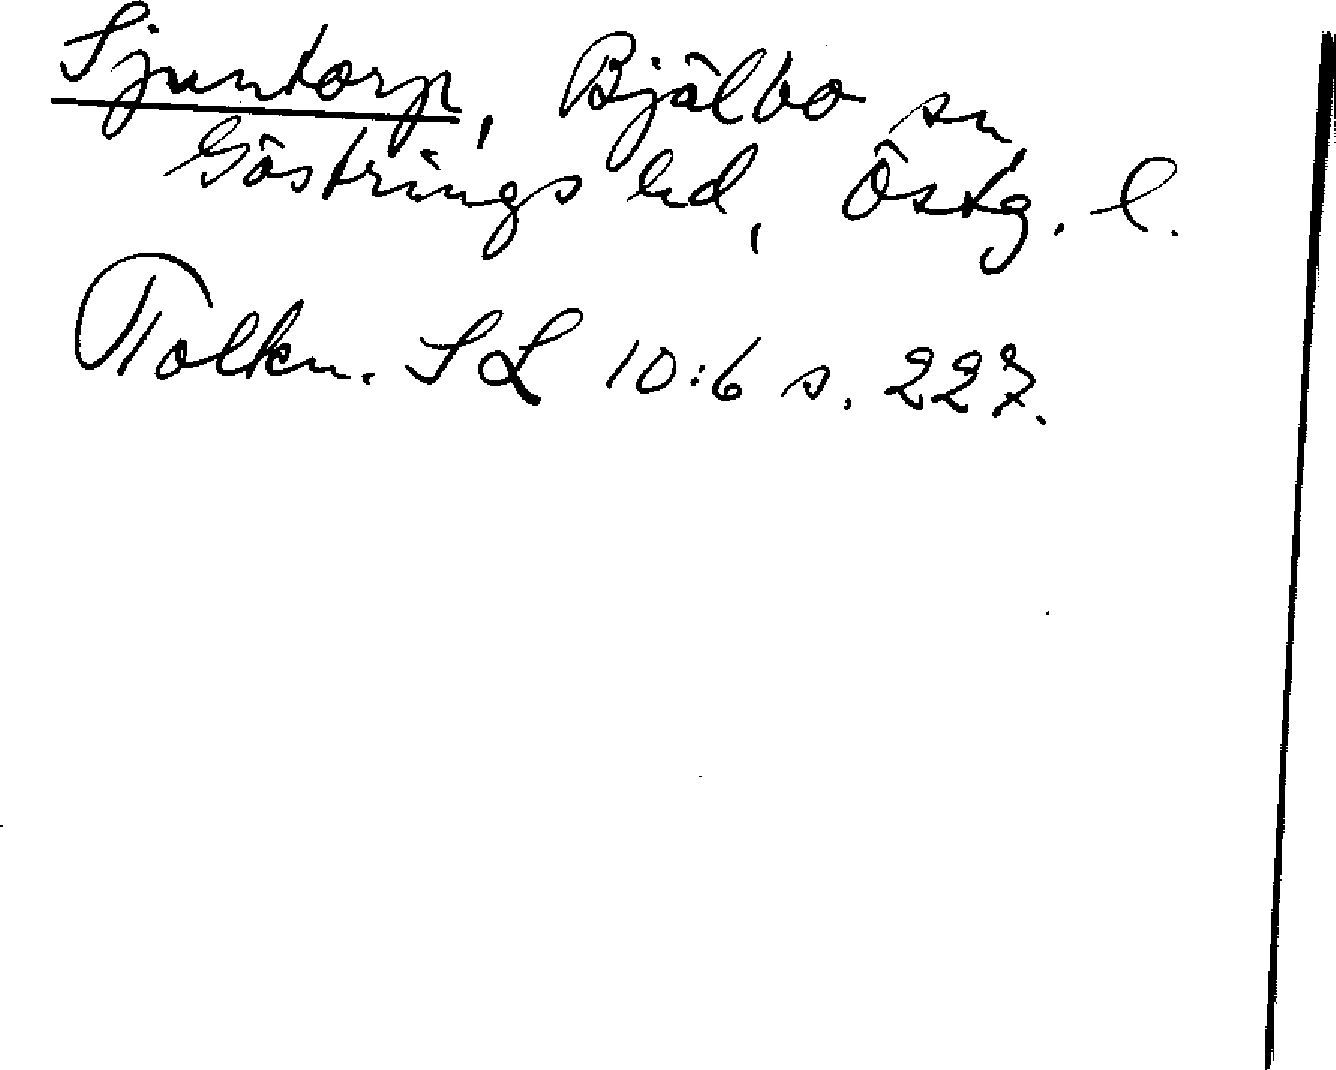 Sjuntorp, Bjälbo sn
Göstrings hd, Östg. l.
Tolkn. SL 10:6 s. 227.